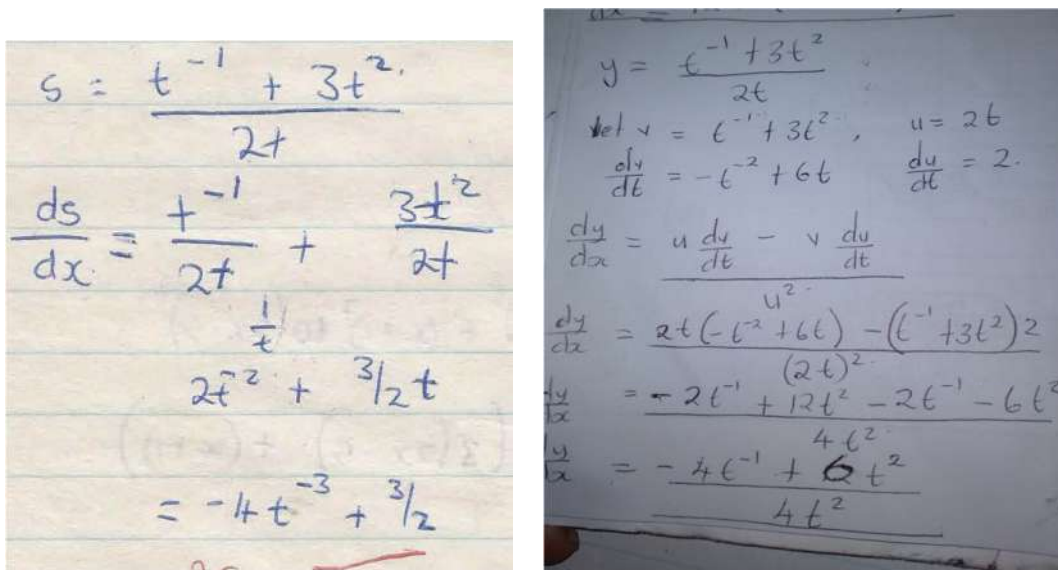 s = t⁻¹ + 3t²
2t
ds/dx = t⁻¹/2t + 3t²/2t
1/t
2t⁻² + 3/2 t
= -4t⁻³ + 3/2
y = t⁻¹ + 3t²
2t
let v = t⁻¹ + 3t², u = 2t
dv/dt = -t⁻² + 6t du/dt = 2.
dy/dx = u dv/dt - v du/dt
u²
dy/dx = 2t(-t⁻² + 6t) - (t⁻¹ + 3t²)2
(2t)²
dy/dx = -2t⁻¹ + 12t² - 2t⁻¹ - 6t²
4t²
dy/dx = -4t⁻¹ + 6t²
4t²